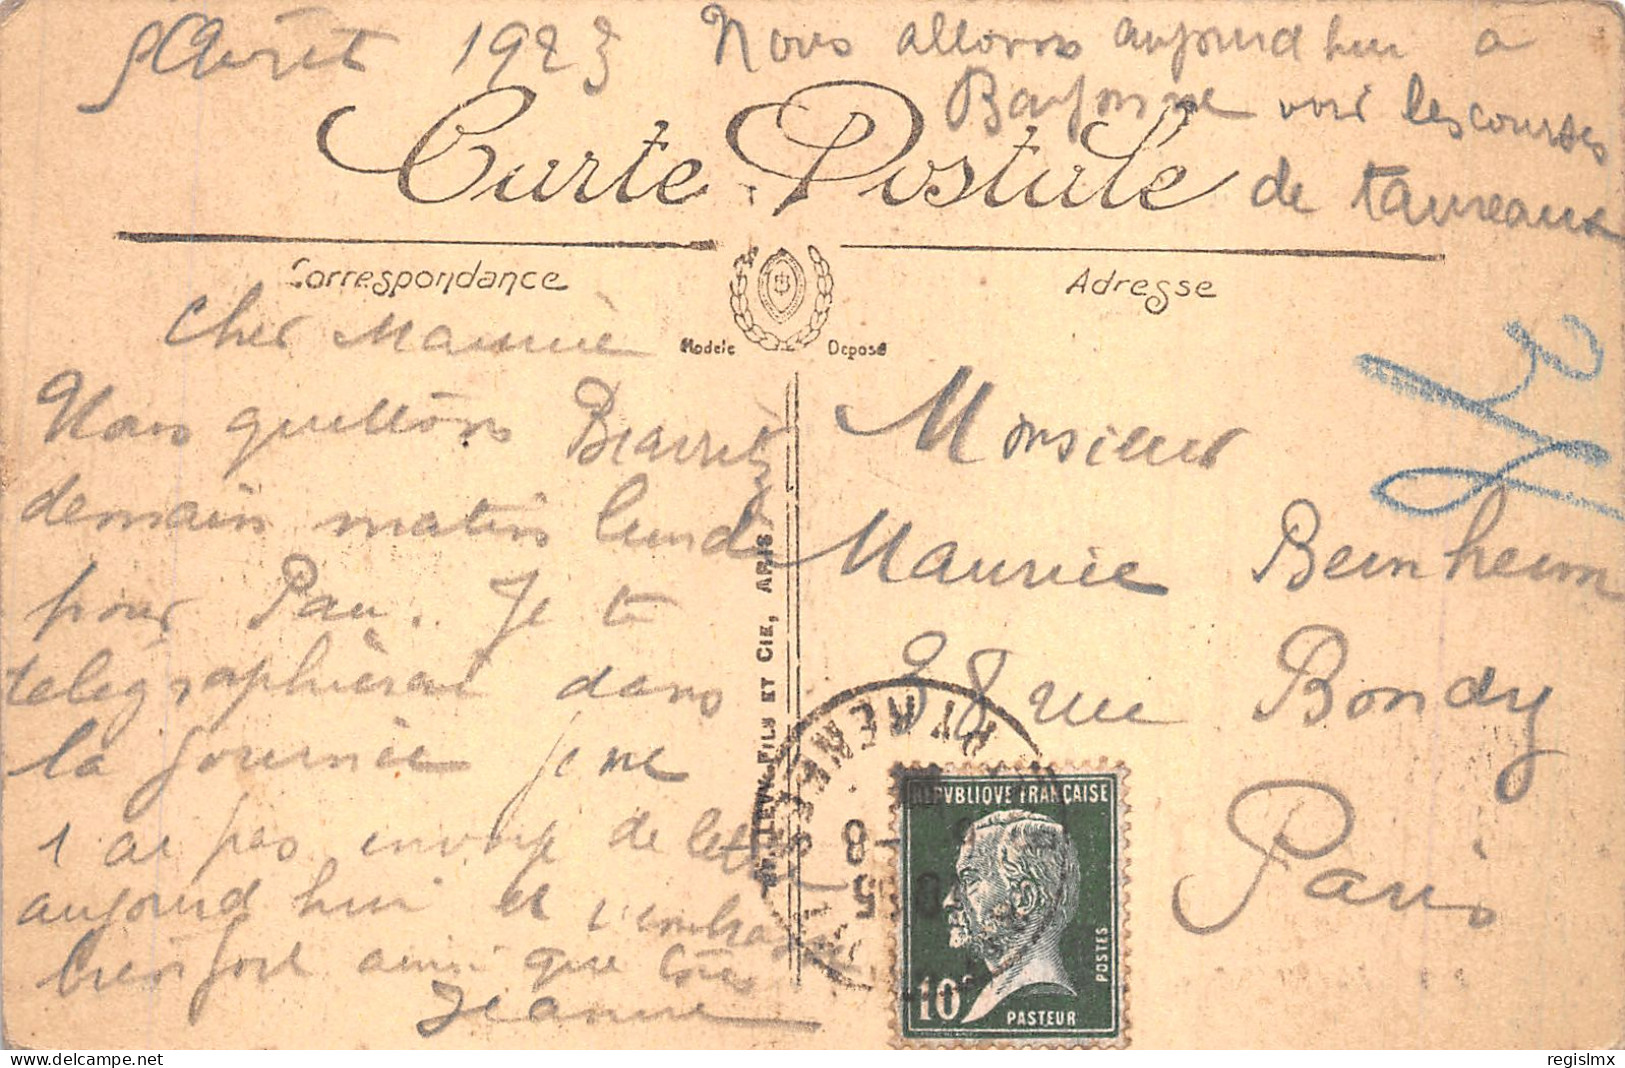 5 Août 1923 Nous allons aujourd hui a
Bayonne voir les courses
de taureaux
Carte Postale
Correspondance
Adresse
Modele Deposé
Cher Maurice
Nous quittons Biarritz
demain matin lundi
pour Pau. Je te
télégraphierai dans
la journée je ne
t ai pas envoyé de lettre
aujourd hui et t'embrasse
bien fort ainsi que tous
Jeanne
LEVY FILS ET CIE, PARIS
Monsieur
Maurice Bernheim
38 rue Bondy
Paris
PYRENEES
5 -8
REPVBLIQVE FRANÇAISE
POSTES
10c
PASTEUR
regislmx